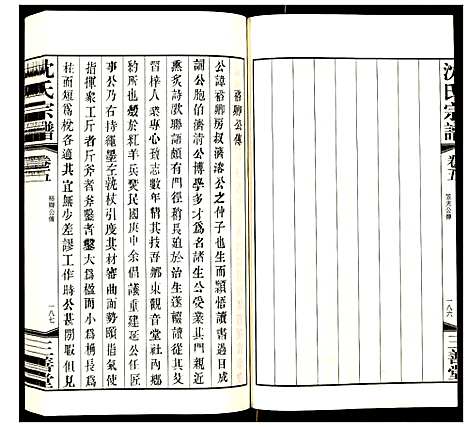 沈氏宗譜
卷五
笠天公傳
一八六
三善堂
裕卿公傳
公諱裕卿房叔濟溶公之仲子也生而穎悟讀書過目成
誦公胞伯濟清公博學多才為名諸生公受業其門親近
薰炙詩歌聯語頗有門徑稍長迫於治生遂輟讀從其父
習梓人業專心致志數年方精技吾鄉東觀音堂社內鄉
約所也燬於紅羊兵燹民國庚申余倡議重建延公任匠
事公乃右執繩墨左執杖引度其材審曲面勢頤指氣使
指揮衆工斤者斤斧者斧鑿者鑿大為楹而小為桷長為
柱而短為梲各適其宜無少差謬工作時公甚閒暇但見
沈氏宗譜
卷五
裕卿公傳
一八七
三善堂